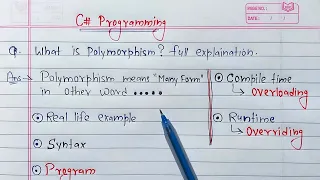 C# Programming
Q. What is Polymorphism? full explaination.
Ans → Polymorphism means "Many Form"
in other word .....
• Real life example
• Syntax
• Program
• Compile time
↳ Overloading
• Runtime
↳ Overriding